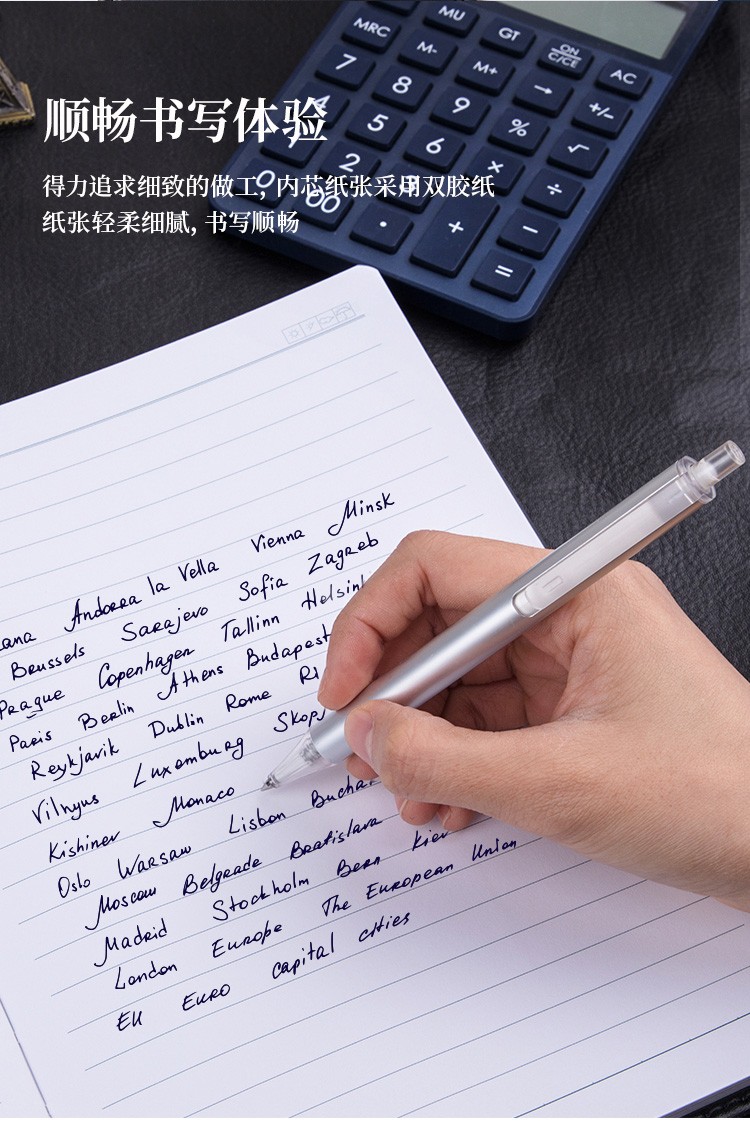 MU
MRC M- GT ON C/CE
7 M+ → AC
8 9 % +/-
4 5 6 √
1 2 3 × ÷
0 00 · + −
=
顺畅书写体验
得力追求细致的做工, 内芯纸张采用双胶纸
纸张轻柔细腻, 书写顺畅
Andorra la Vella Vienna Minsk
Brussels Sarajevo Sofia Zagreb
Prague Copenhagen Tallinn Helsink
Paris Berlin Athens Budapest
Reykjavik Dublin Rome
Vilnyus Luxemburg Skopj
Kishinev Monaco
Oslo Warsaw Lisbon Buchar
Moscow Belgrade Bratislava
Madrid Stockholm Bern Kiev
London Europe The European Union
EU Euro capital cities